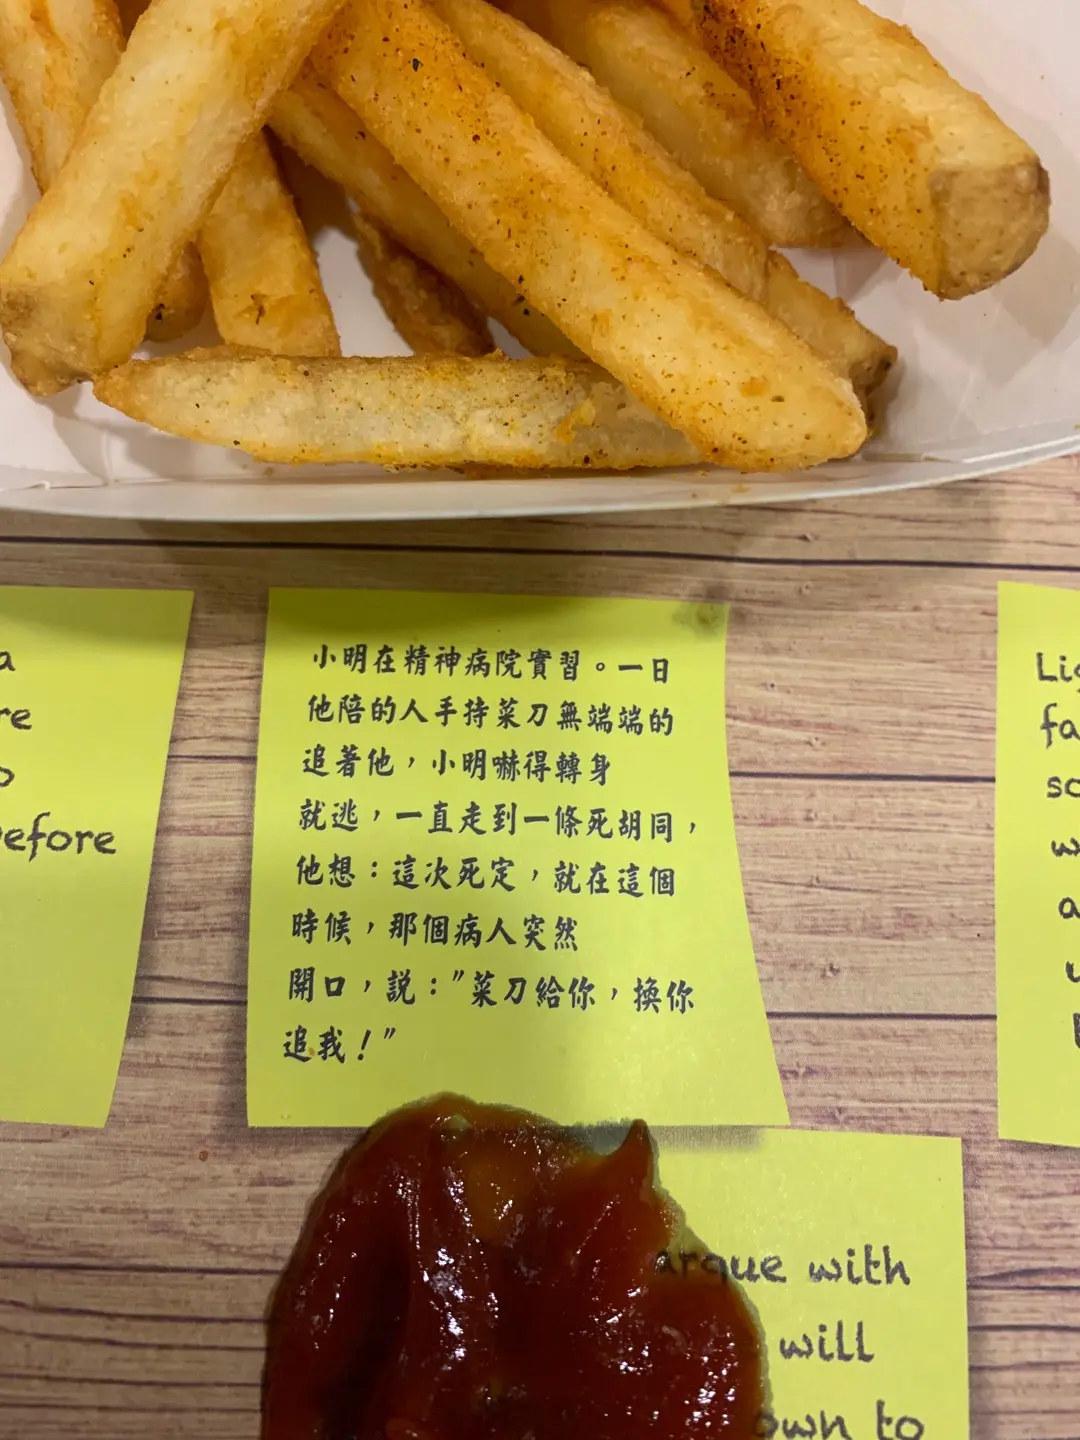 a
re
o
efore
小明在精神病院實習。一日
他陪的人手持菜刀無端端的
追著他，小明嚇得轉身
就逃，一直走到一條死胡同，
他想：這次死定，就在這個
時候，那個病人突然
開口，説："菜刀給你，換你
追我！"
Lig
fa
so
w
a
u
argue with
will
own to